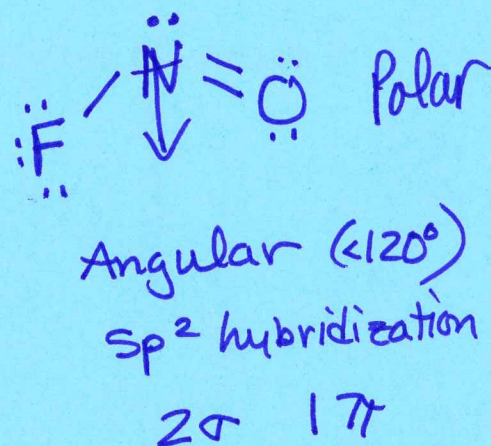 :F̈ - N̈ = Ö: Polar
Angular (<120°)
Sp² hybridization
2σ 1π